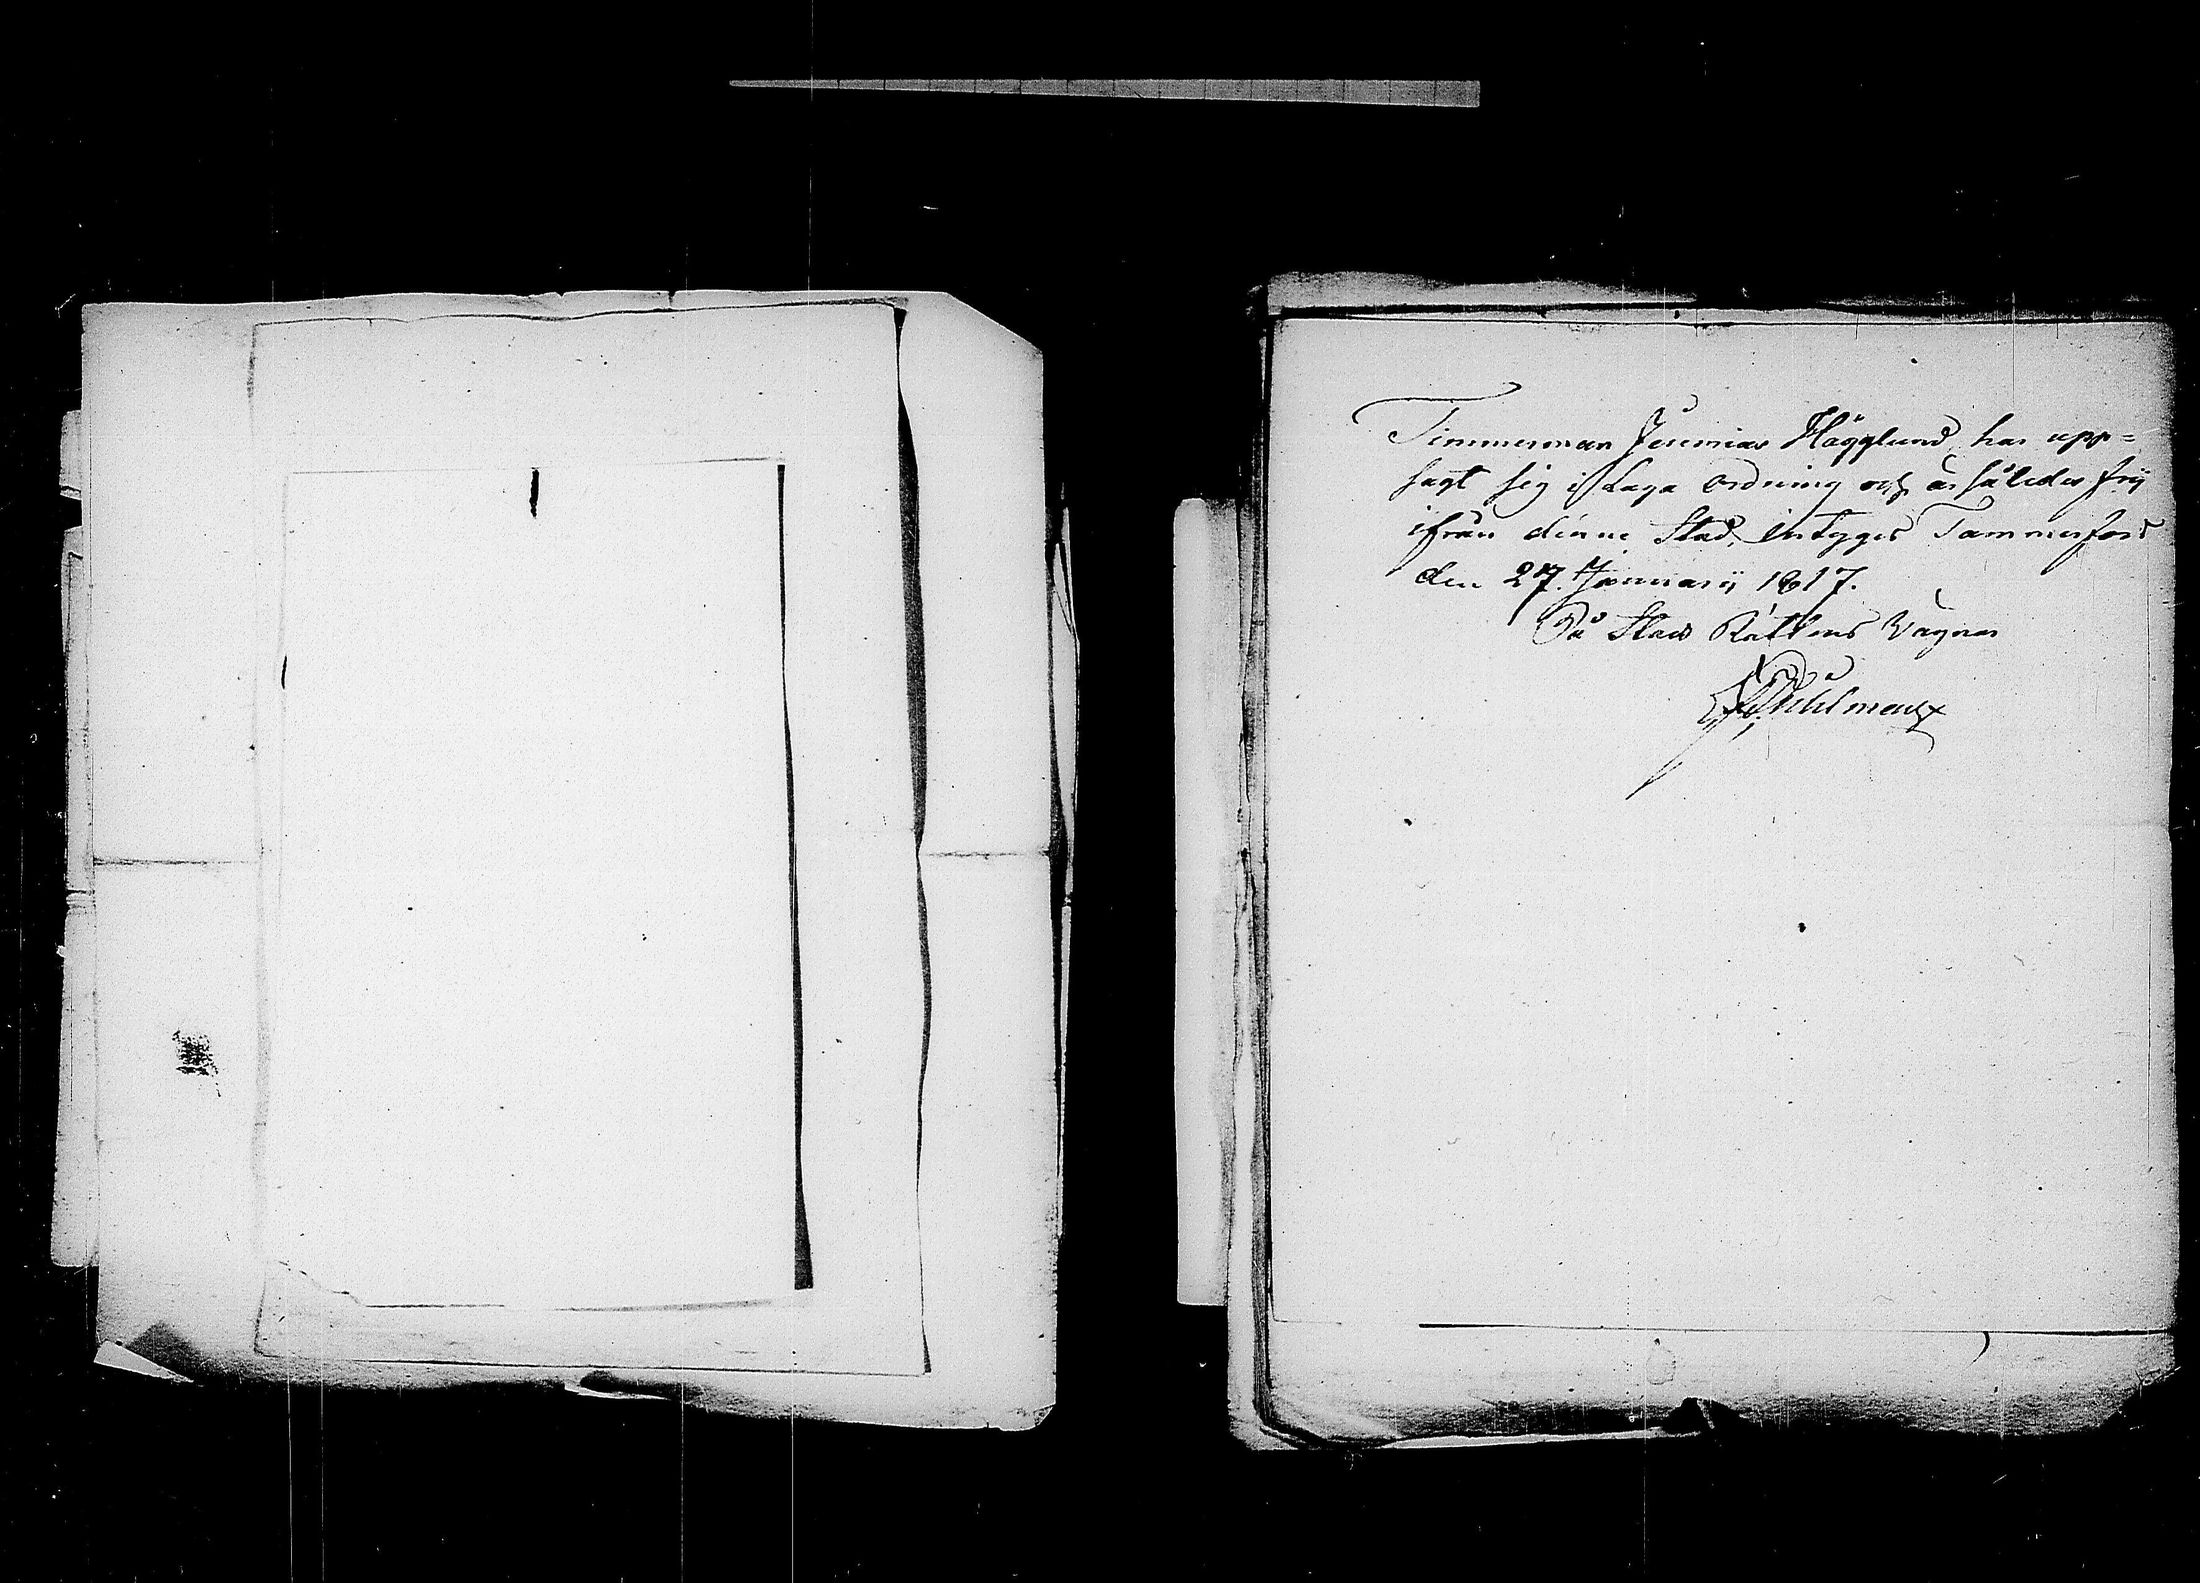 Timmerman Jeremias Hägglund har upp=
sagt sig i Laga Ordning och är således frij
ifrån denne Stad, intyges Tammerfors
den 27. Januarij 1817.
På Stads Rättens Vägnar